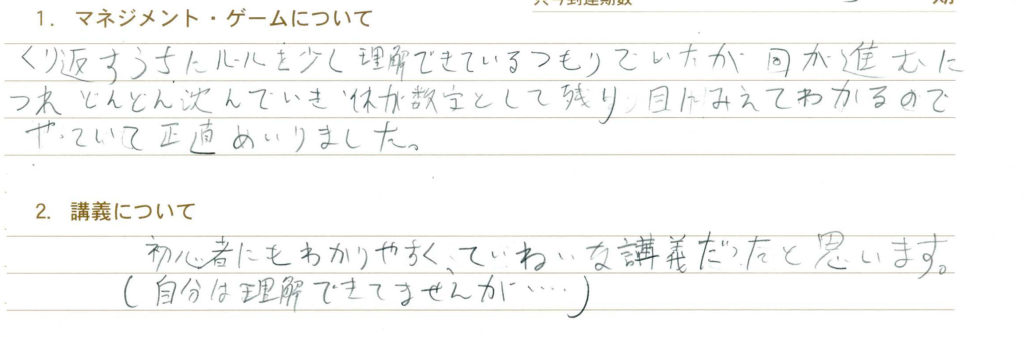 1. マネジメント・ゲームについて
くり返すうちにルールを少し理解できているつもりでいたが 回が進むに
つれ どんどん沈んでいき 体が数字として残り、目にみえてわかるので
やっていて正直めいりました。
2. 講義について
初心者にもわかりやすく、ていねいな講義だったと思います。
(自分は理解できてませんが・・・・)